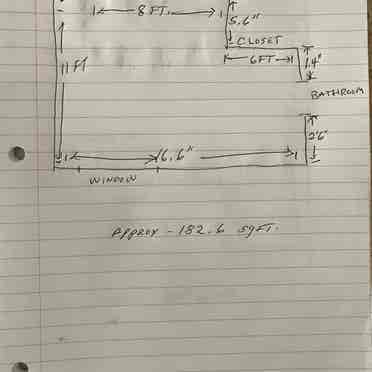 8 FT.
5.6"
CLOSET
6 FT
1.4"
11 FT
BATHROOM
2'6"
16.6"
WINDOW
APPROX - 182.6 SQFT.